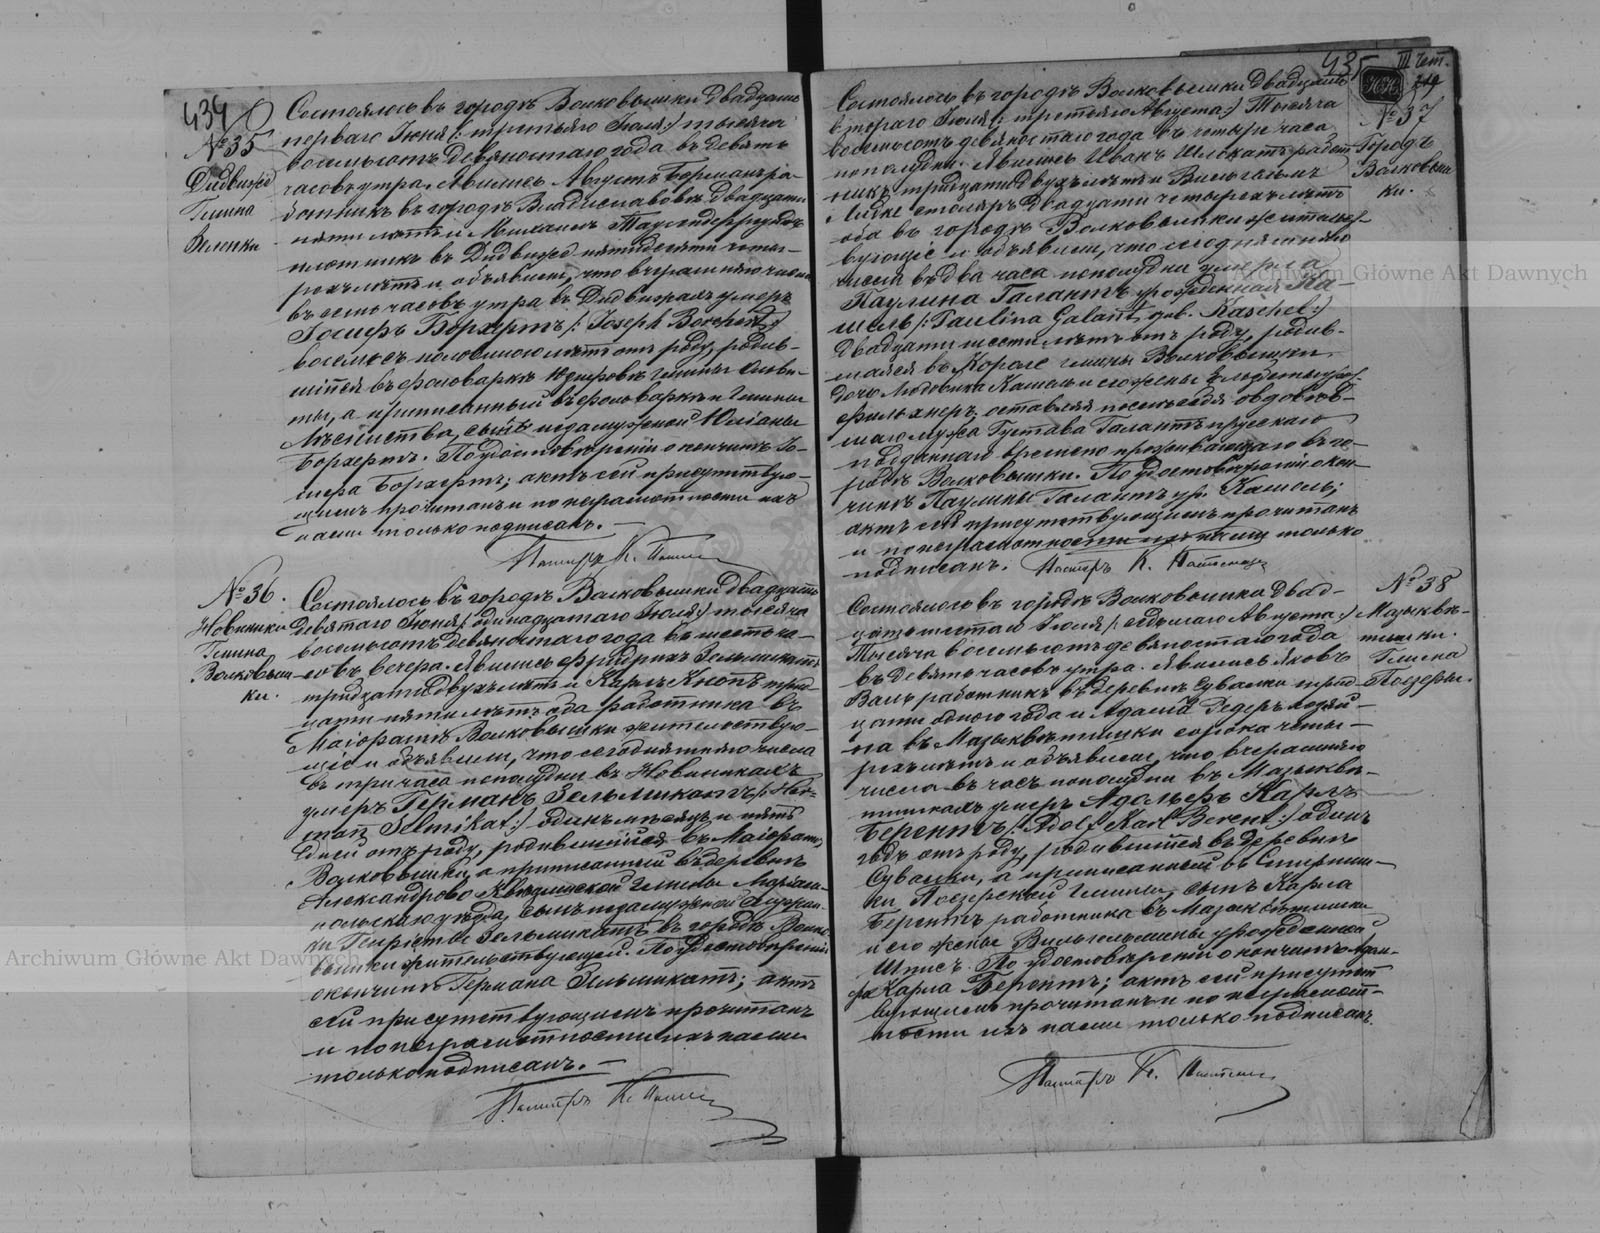 434
№ 35
Дидвиже
Гмина
Зеленки
Состоялось въ городѣ Волковышки двадцать
перваго Іюня /: третьяго Іюля :/ тысяча
восемьсотъ девяностаго года въ девять
часовъ утра. Явились Августъ Борманъ ра-
ботникъ въ городѣ Владиславовѣ двадцати
пяти лѣтъ и Михаилъ
плотникъ въ Дидвиже пятьдесяти четы-
рехъ лѣтъ и объявили, что вчерашняго числа
въ семь часовъ утра въ Дидвижахъ умеръ
Іосифъ Борхертъ /: Joseph Borchert :/
восемь съ половиною лѣтъ отъ роду, родив-
шійся въ фольваркѣ гмины
а приписанный въ фольваркѣ и гмины
сынъ незамужней Юліаны
Борхертъ. По удостовѣреніи о кончинѣ Іо-
сифа Борхертъ; актъ сей присутствую-
щимъ прочитанъ и по неграмотности ихъ
нами только подписанъ. —
Пасторъ К.
№ 36.
Новинники
Гмина
Волковыш-
ки.
Состоялось въ городѣ Волковышки двадцать
девятаго Іюня /: одинадцатаго Іюля :/ тысяча
восемьсотъ девяностаго года въ шесть ча-
совъ вечера. Явились Фридрихъ Зельмикатъ
тридцати двухъ лѣтъ и Карлъ Кнопъ трид-
цати пяти лѣтъ оба работника въ
Маіоратѣ Волковышки жительствую-
щіе и объявили, что сегодняшняго числа
въ три часа пополудни въ Новинникахъ
умеръ Германъ Зельмикатъ /: Her-
man Selmikat :/ одинъ мѣсяцъ и пять
дней отъ роду, родившійся въ Маіоратѣ
Волковышки, а приписанный въ деревнѣ
Александрово гмины Маріам-
польскаго уѣзда, сынъ незамужней
Генріеты Зельмикатъ въ городѣ Волко-
вышки жительствующей. По удостовѣреніи
о кончинѣ Германа Зельмикатъ; актъ
сей присутствующимъ прочитанъ
и по неграмотности ихъ нами
только подписанъ. —
Пасторъ К.
435
III Чет.
№ 37
Городъ
Волковыш-
ки.
Состоялось въ городѣ Волковышки двадцать
втораго Іюля /: третьяго Августа :/ Тысяча
восемьсотъ девяностаго года въ четыре часа
пополудни. Явились Иванъ работ-
никъ тридцати двухъ лѣтъ и Вильгельмъ
Лидке столяръ двадцати четырехъ лѣтъ
оба въ городѣ Волковышки жительст-
вующіе и объявили, что сегодняшняго
числа въ два часа пополудни умерла
Паулина Галантъ урожденная Ка-
шель /: Paulina Galant geb. Kaschel :/
двадцати шести лѣтъ отъ роду, родив-
шаяся въ Королѣ гмины Волковышки
дочь Людовика Кашель и его жены Эльжбеты урож.
оставляя послѣ себя овдовѣв-
шаго мужа Густава Галантъ прусскаго
подданнаго временно проживающаго въ го-
родѣ Волковышки. По удостовѣреніи о кон-
чинѣ Паулины Галантъ ур. Кашель;
актъ сей присутствующимъ прочитанъ
и по неграмотности ихъ нами только
подписанъ. Пасторъ К.
№ 38
Мазыквѣ-
тишки.
Гмина
Поезеры.
Состоялось въ городѣ Волковышки двад-
цать шестаго Іюля /: седьмаго Августа :/
Тысяча восемьсотъ девяностаго года
въ девять часовъ утра. Явились Яковъ
Валь работникъ въ деревнѣ Сувалки трид-
цати одного года и Адамъ Федеръ хозяй-
нъ въ Мазыквѣтишки сорока четы-
рехъ лѣтъ и объявили, что вчерашняго
числа въ часъ пополудни въ Мазыквѣ-
тишкахъ умеръ Адольфъ Карлъ
Берентъ /: Adolf Karl Berent :/ одинъ
годъ отъ роду, родившійся въ деревнѣ
Сувалки, а приписанный въ
Поезерской гмины, сынъ Карла
Берентъ работника въ Мазыквѣтишки
и его жены Вильгельмины урожденной
Шписъ. По удостовѣреніи о кончинѣ Адоль-
фа Карла Берентъ; актъ сей присутст-
вующимъ прочитанъ и по неграмот-
ности ихъ нами только подписанъ.
Пасторъ К.
Archiwum Główne Akt Dawnych
Archiwum Główne Akt Dawnych